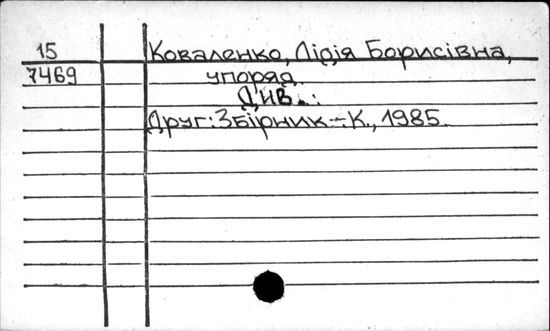 15 Коваленко, Лідія Борисівна,
7469 упоряд
Див.:
Друг: Збірник.-К., 1985.